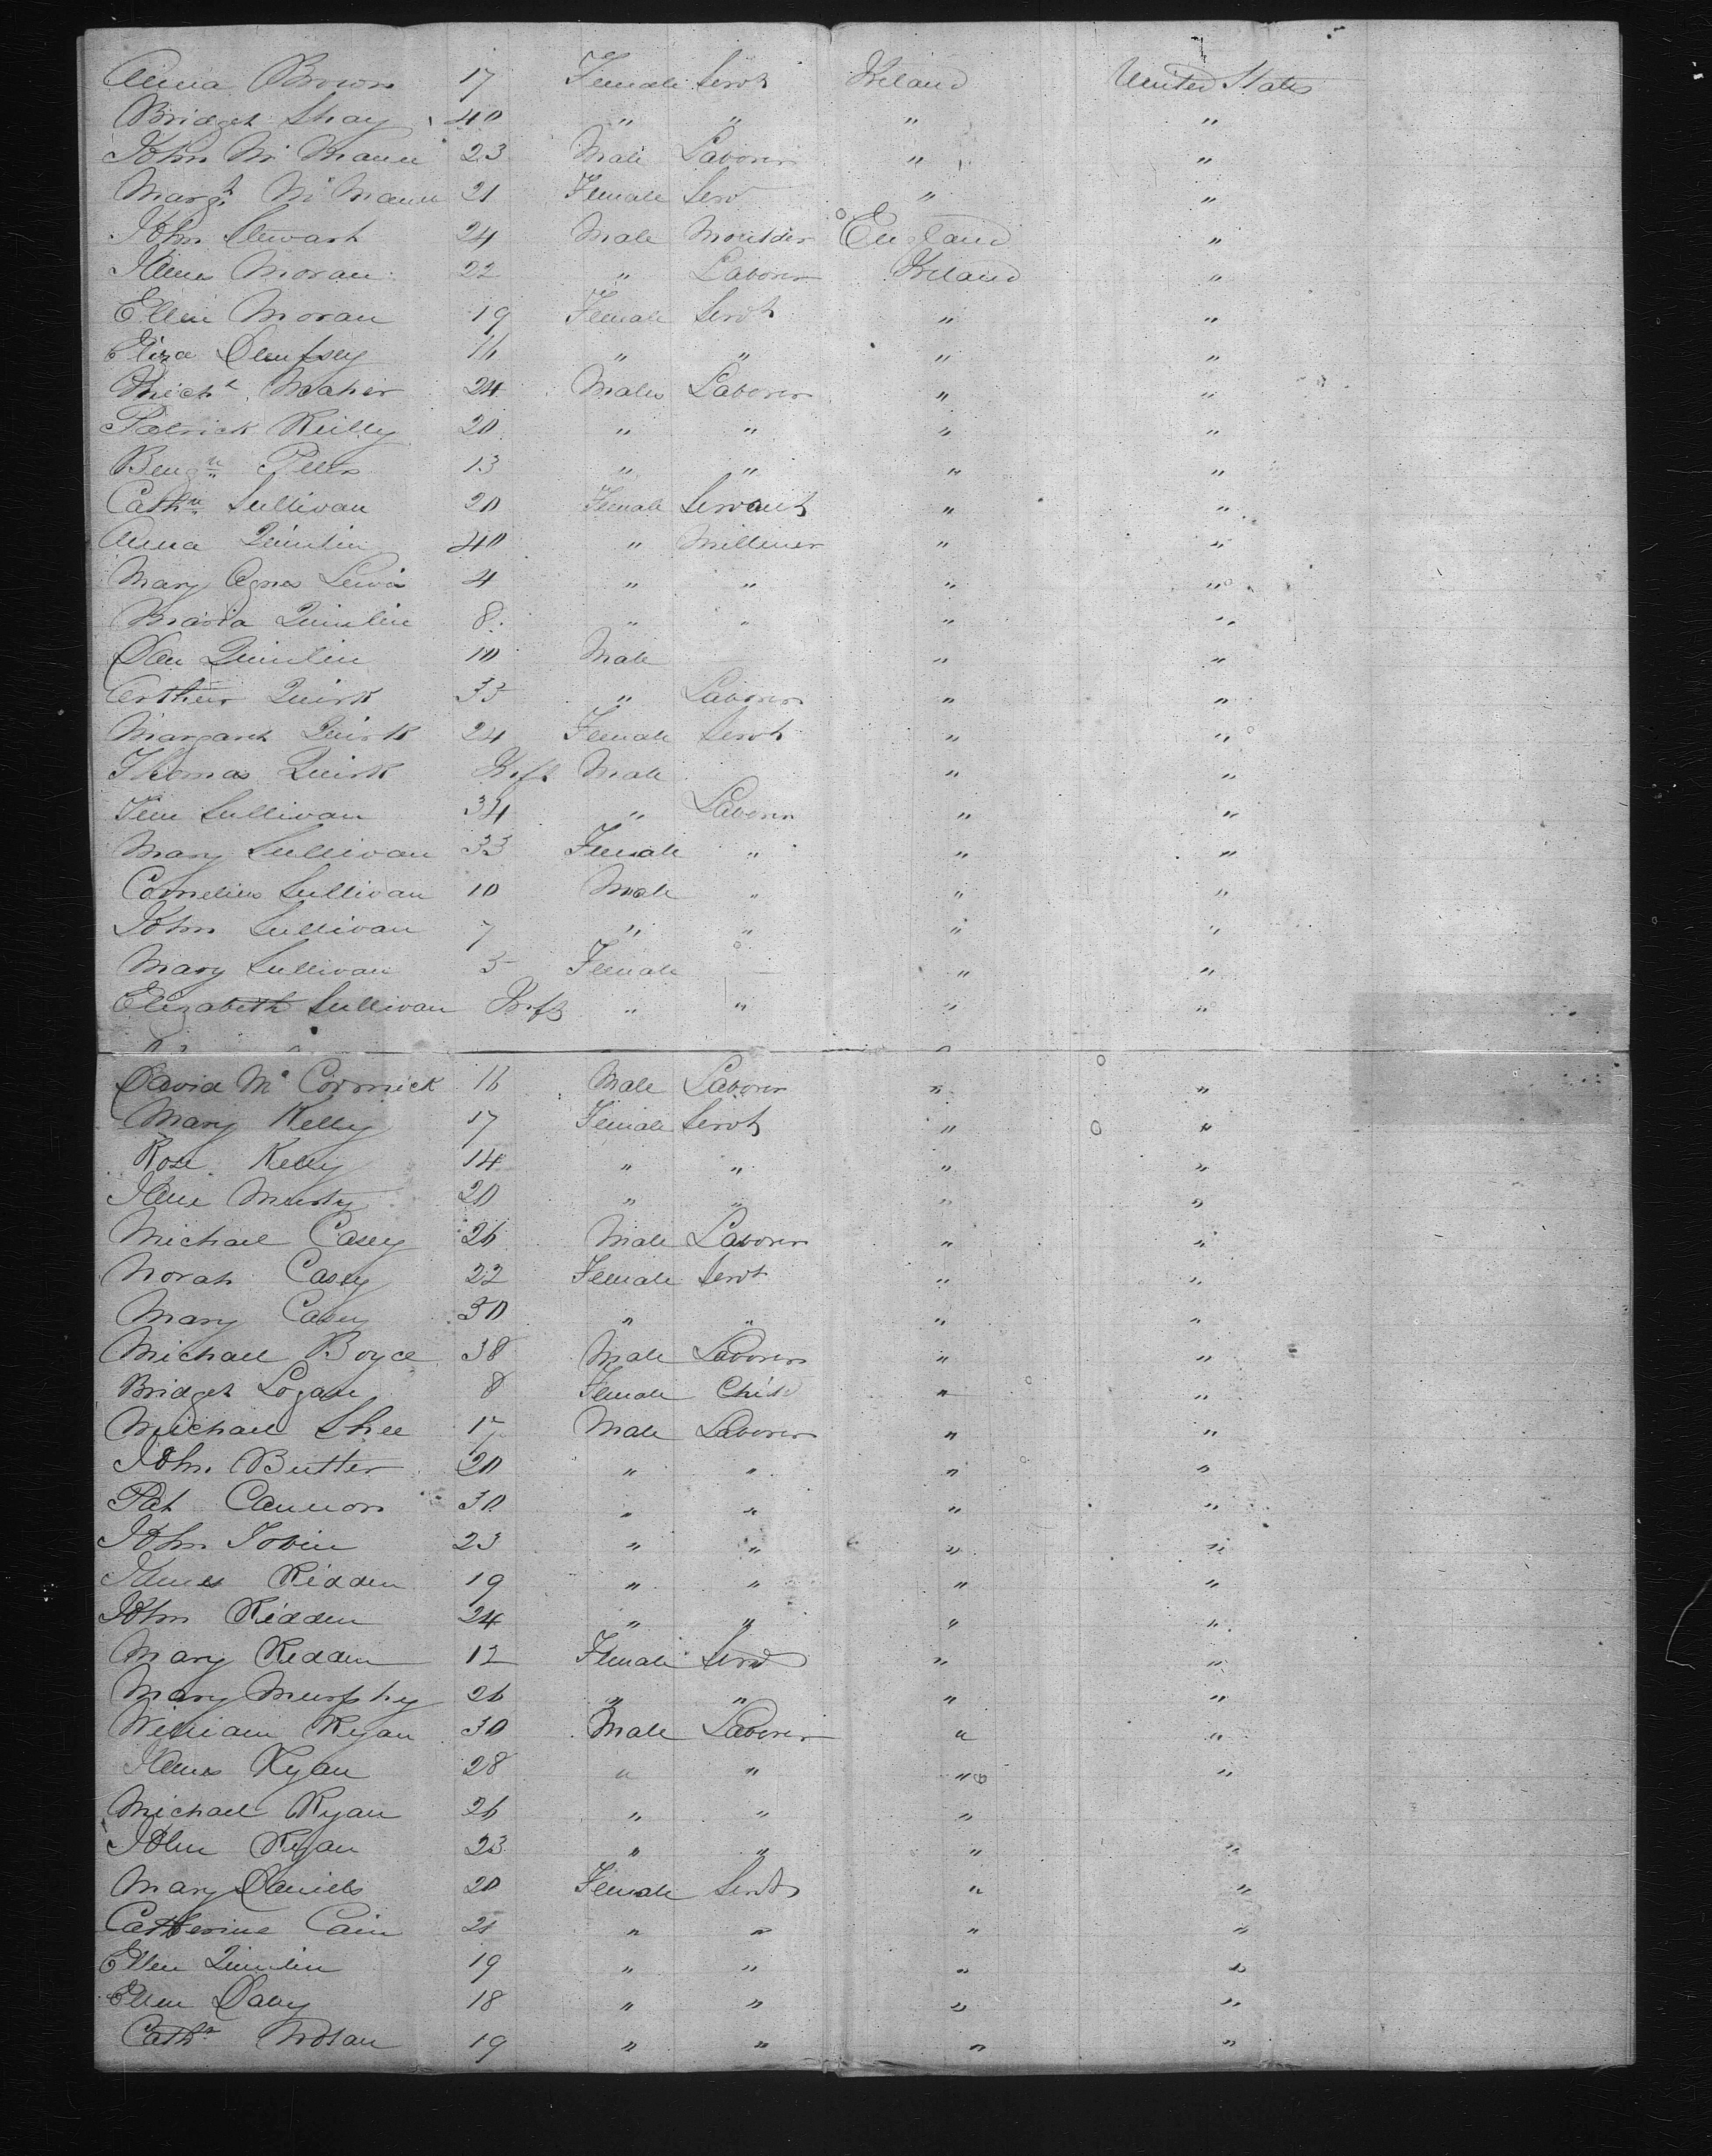 Anna Brown 17 Female Servt Ireland United States
Bridget Shay 40 " " " "
John Mc Mann 23 Male Laborer " "
Margt Mc Mann 21 Female Serv " "
John Stewart 24 Male Moulder England "
James Moran 22 " Laborer Ireland "
Ellen Moran 19 Female Servt " "
Eliza Dempsey 16 " " " "
Michl Maher 24 Male Laborer " "
Patrick Reilly 20 " " " "
13 " " " "
Cathn Sullivan 20 Female Servant " "
Anna Quinlin 40 " Milliner " "
Mary Agnes Lewis 4 " " " "
Maria Quinlin 8 " " " "
Dan Quinlin 10 Male " "
Arthur Quirk 35 " Laborer " "
Margaret Quirk 24 Female Servt " "
Thomas Quirk Inft Male " "
Tim Sullivan 34 " Laborer " "
Mary Sullivan 33 Female " " "
Cornelius Sullivan 10 Male " " "
John Sullivan 7 " " " "
Mary Sullivan 5 Female " "
Elizabeth Sullivan Inft " " " "
David Mc Cormick 16 Male Laborer " "
Mary Kelly 17 Female Servt " "
Rose Kelly 14 " " " "
Jane Murty 20 " " " "
Michael Casey 26 Male Laborer " "
Norah Casey 22 Female Servt " "
Mary Casey 30 " " " "
Michael Boyce 38 Male Laborer " "
Bridget Logan 8 Female Child " "
Michael Shee 17 Male Laborer " "
John Butler 20 " " " "
Pat Cannon 30 " " " "
John Tobin 23 " " " "
James Ridden 19 " " " "
John Ridden 24 " " " "
Mary Ridden 12 Female Servt " "
Mary Murphy 26 " " " "
William Ryan 30 Male Laborer " "
James Ryan 28 " " " "
Michael Ryan 26 " " " "
John Ryan 23 " " " "
Mary Daniels 20 Female Servt " "
Catherine Cain 21 " " " "
Ellen Quinlin 19 " " " "
Ellen Daly 18 " " " "
Cathn Nolan 19 " " " "